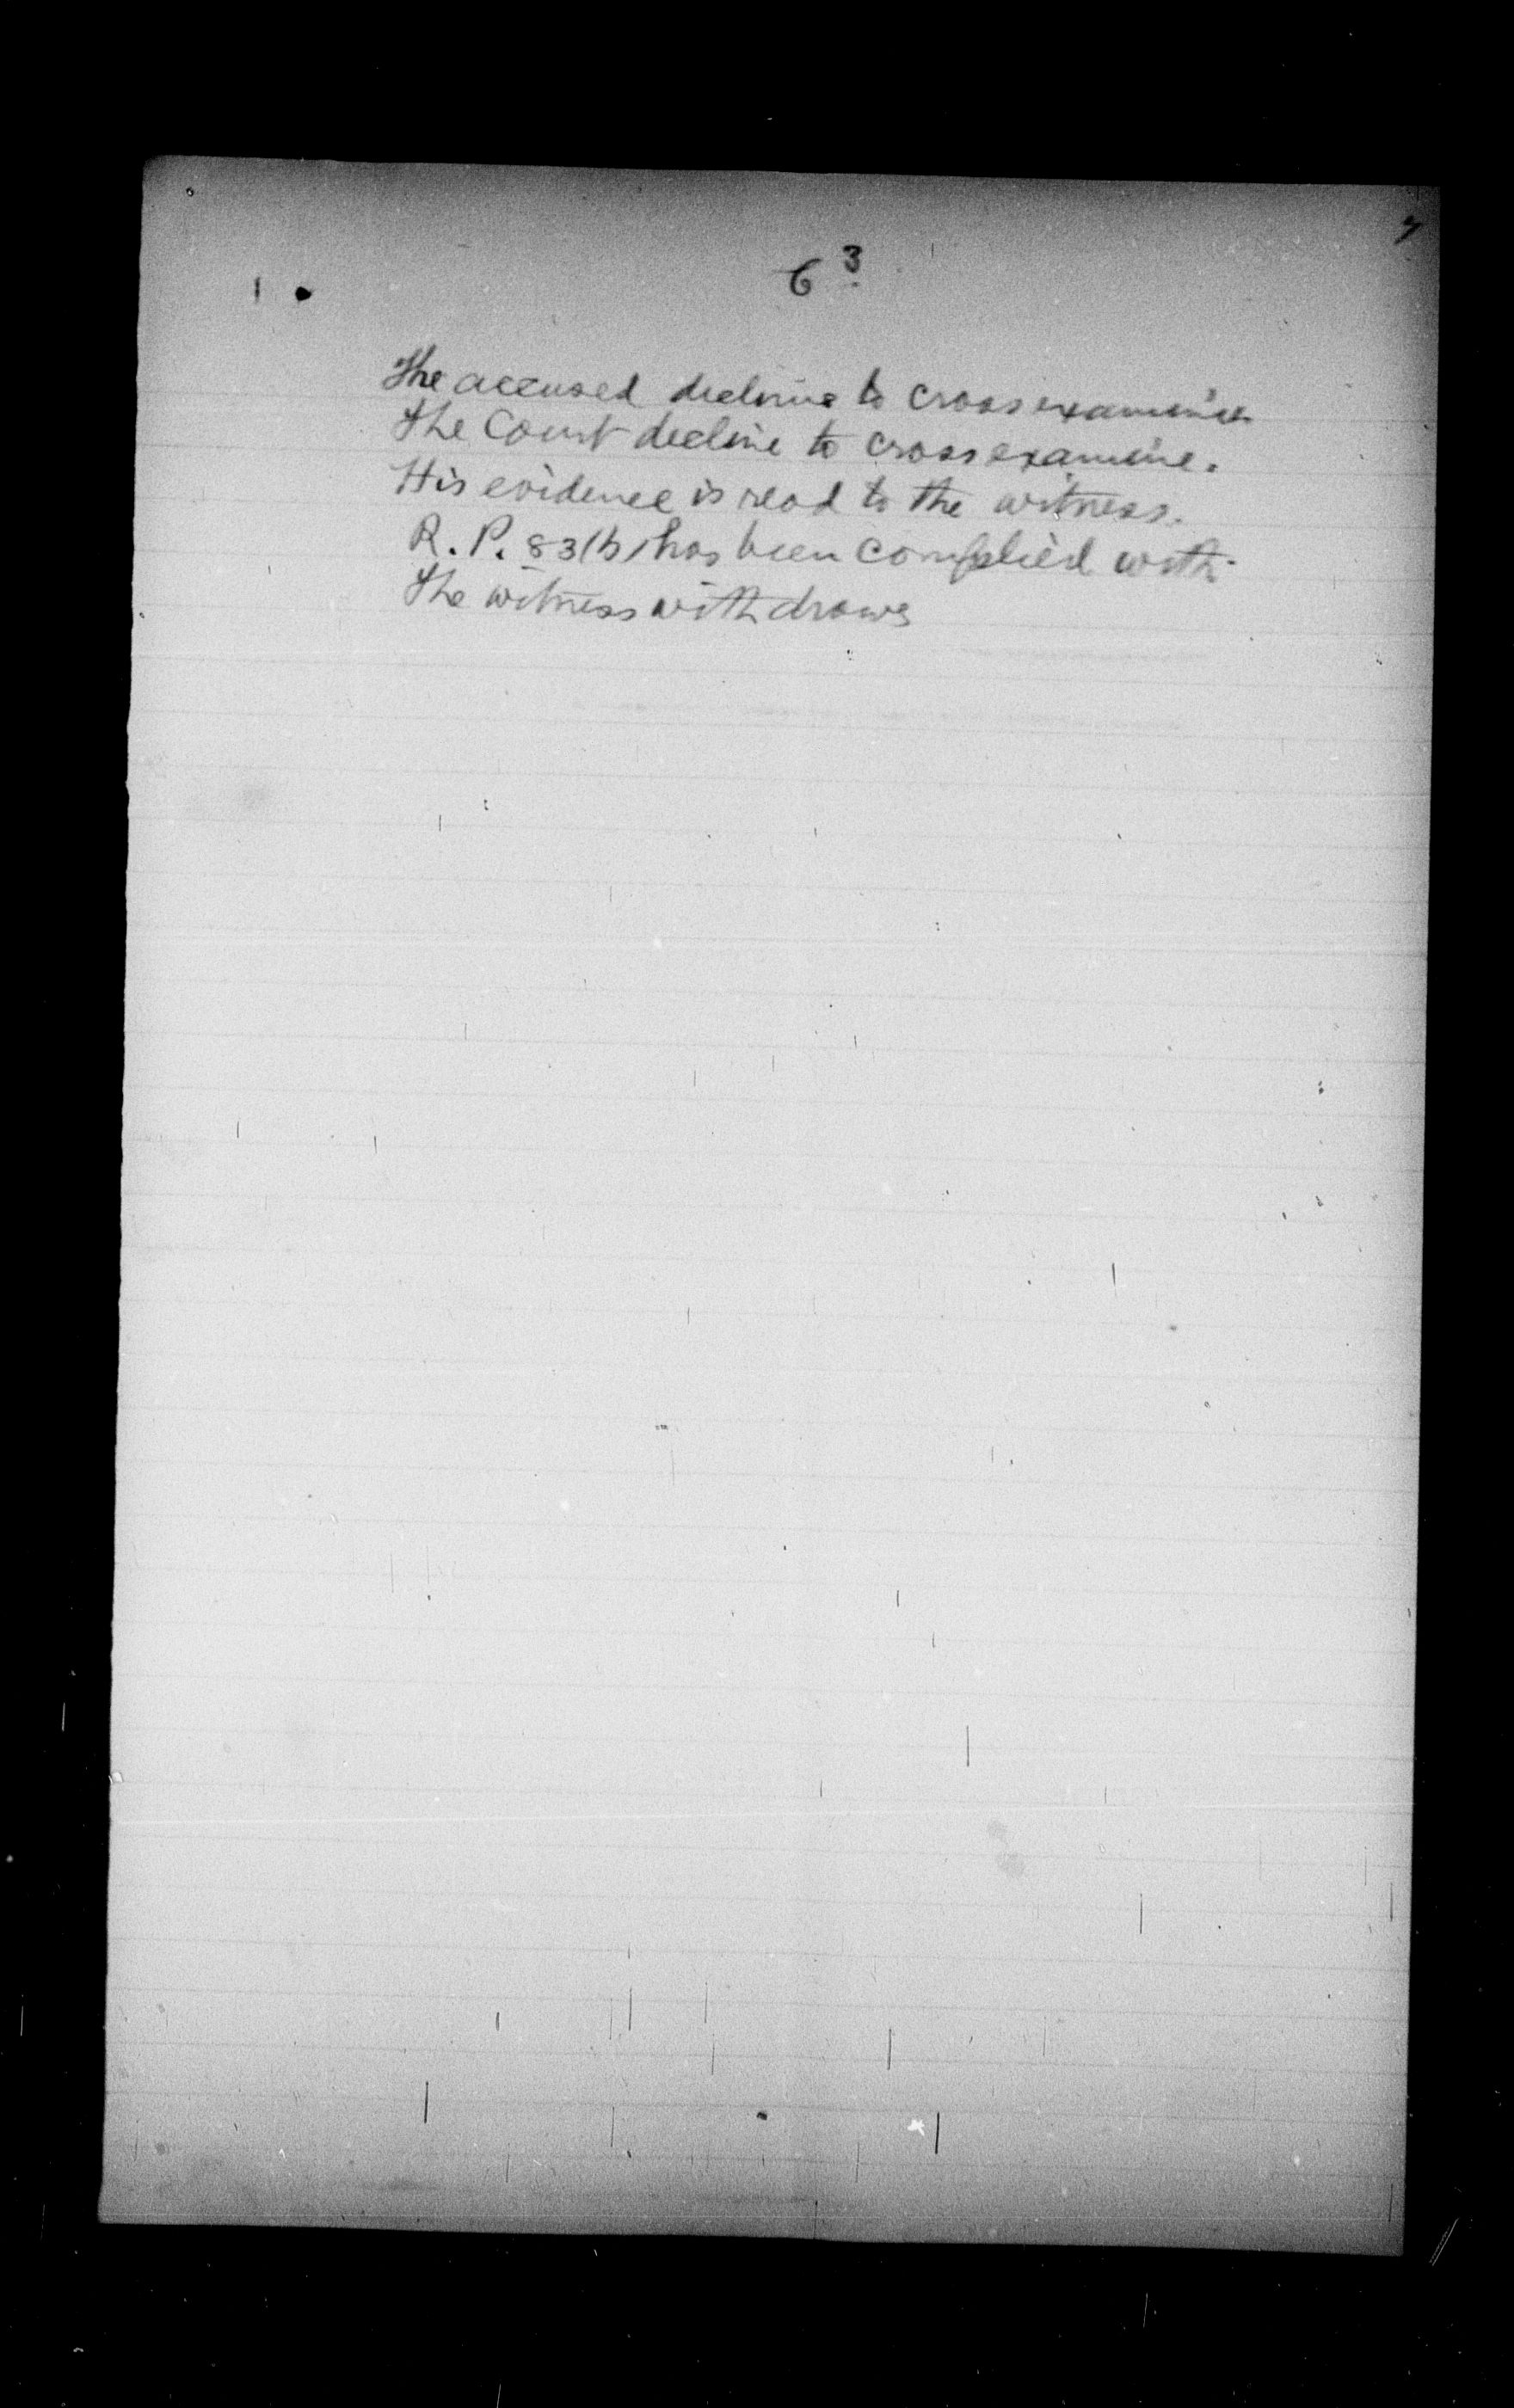 6 3.
The accused decline to cross examine
The Court decline to cross examine.
His evidence is read to the witness.
R. P. 83(b) has been complied with.
The witness withdraws